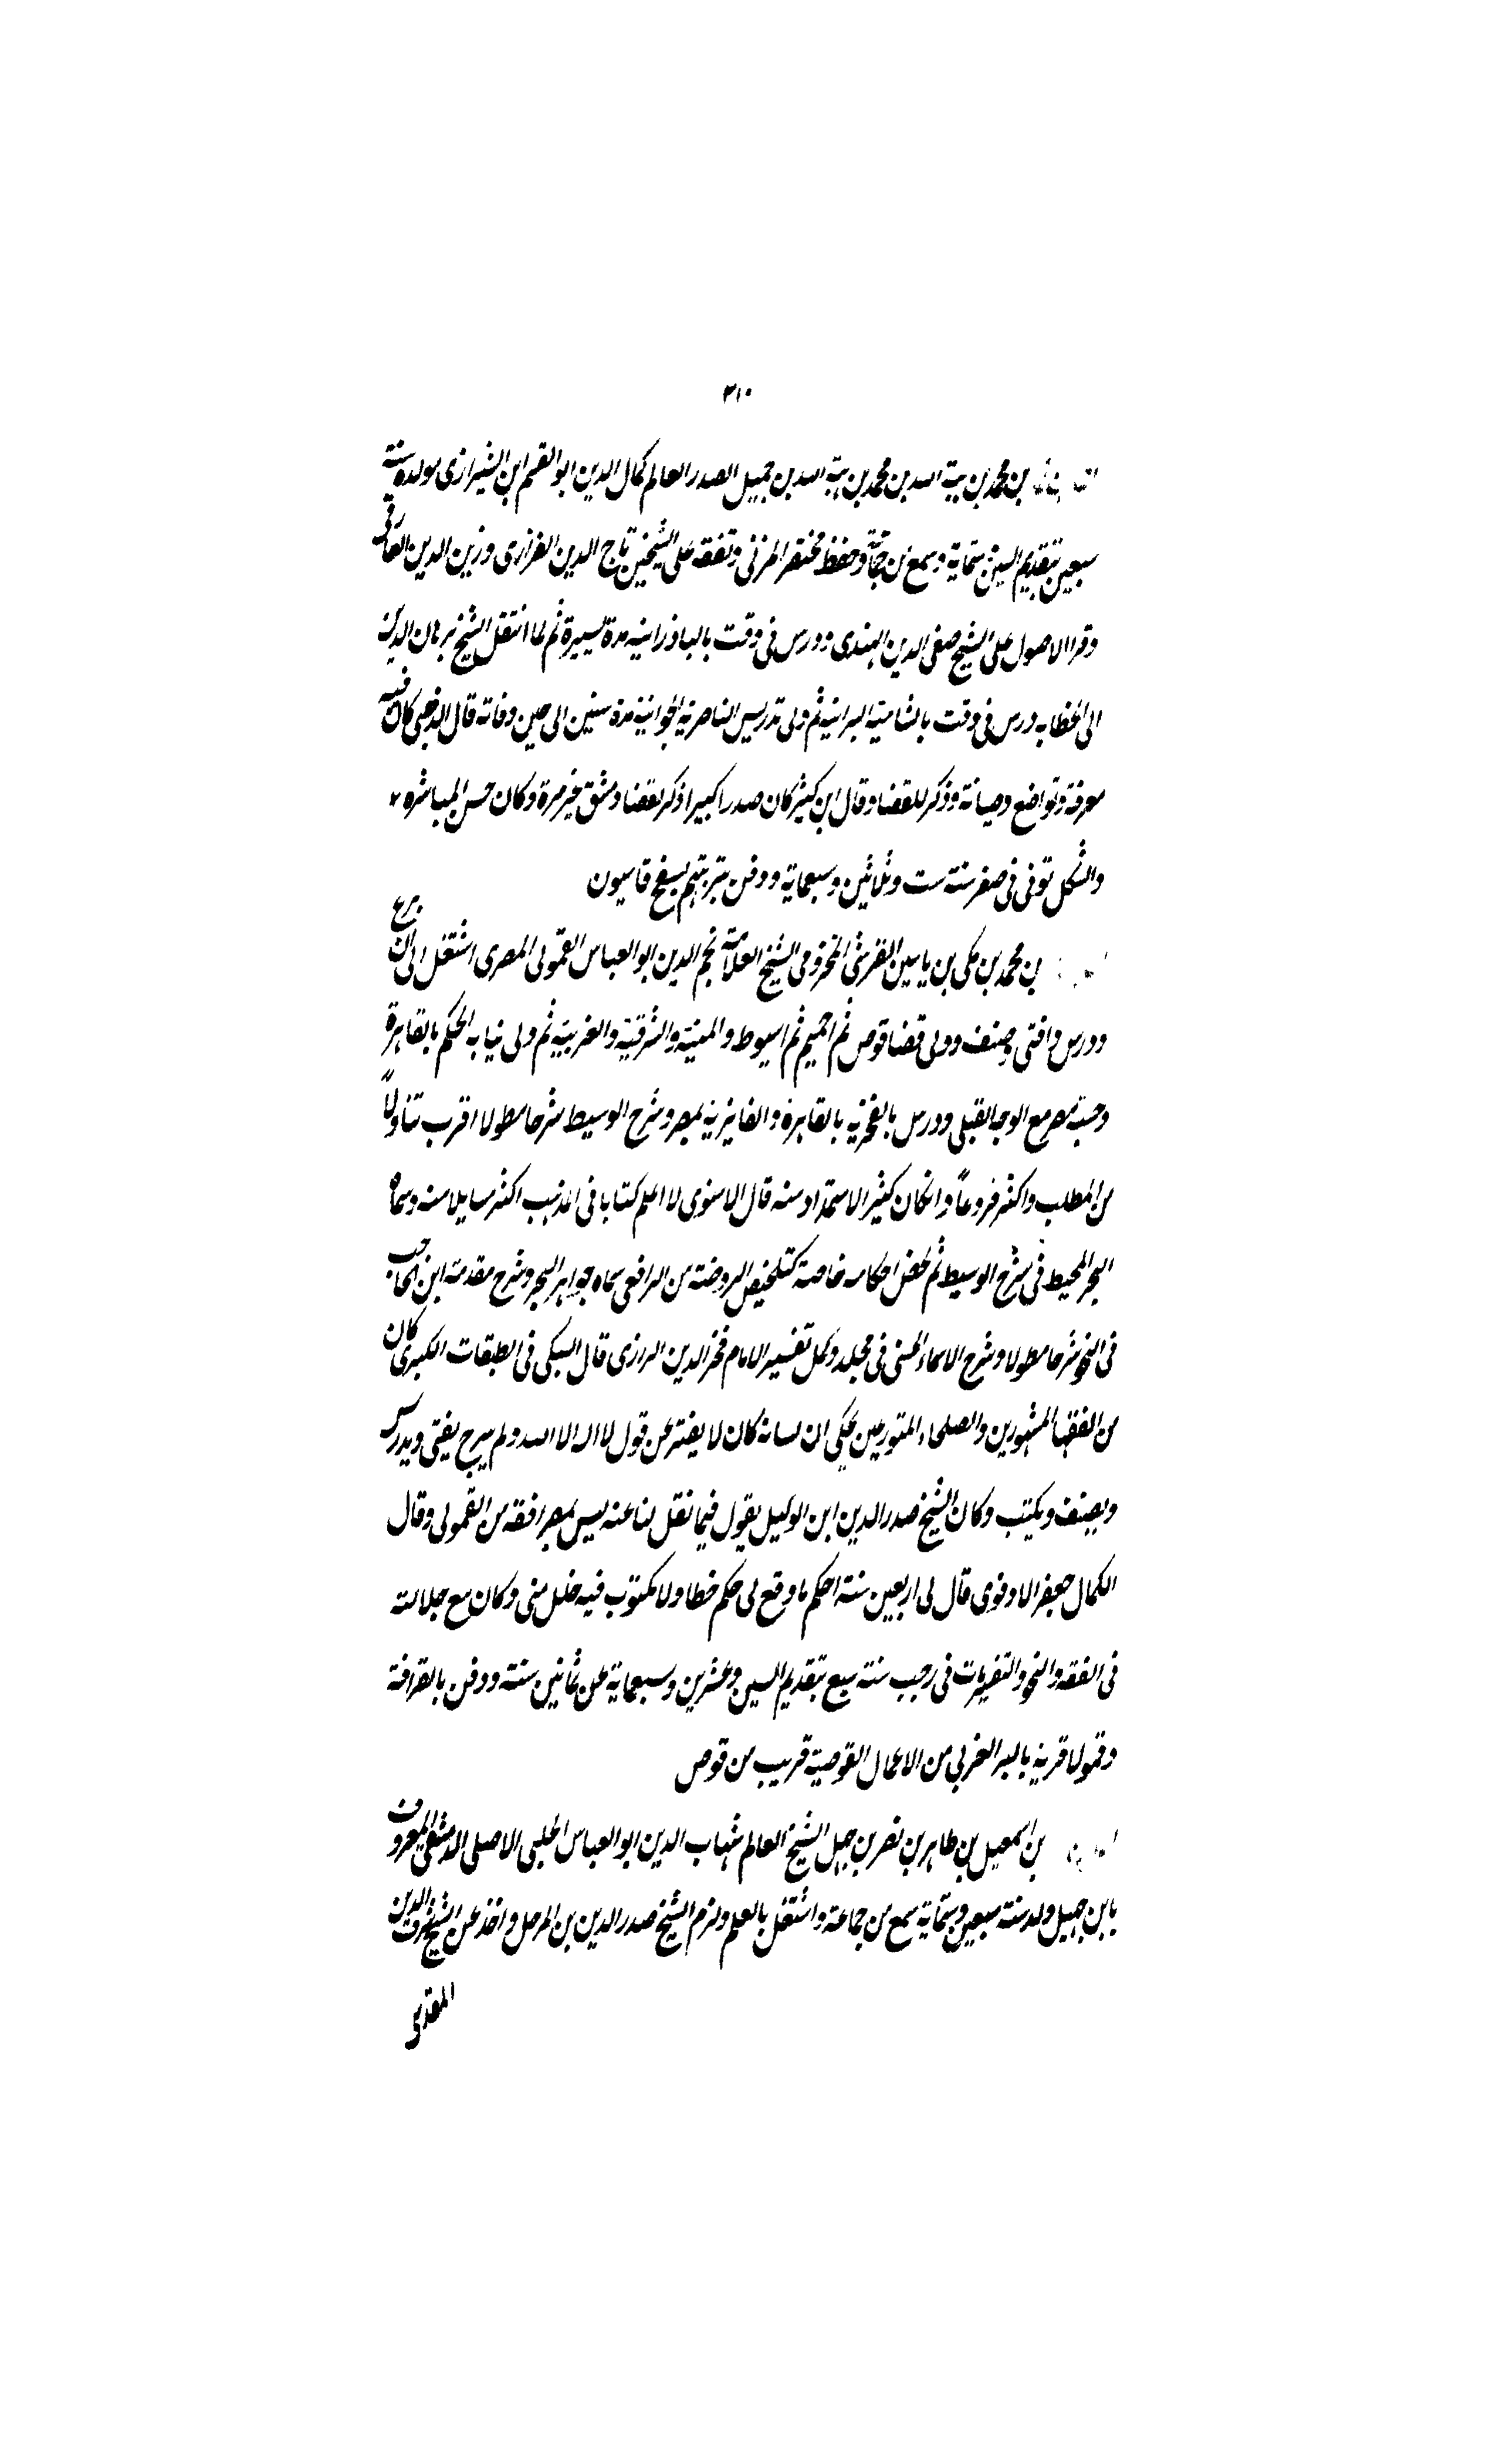 ٣١٠
بن محمد بن هبة الله بن محمد بن هبة الله بن جميل الصدر العالم كمال الدين ابو القسم ابن الشيرازى مولده سنة
سبعين بتقديم السين وستماية وسمع من جماعة وحفظ مختصر المزنى وتفقه على الشيخين تاج الدين الفزارى وزين الدين الفارقى
وقرا الاصول على الشيخ صفى الدين الهندى ودرس فى وقت بالباذرانية مدة يسيرة ثم لما انتقل الشيخ برهان الدين
الى الخطابه درس فى وقت بالشامية البرانية ثم ولى تدريس الناصرية الجوانية مدة سنين الى حين وفاته قال الذهبى كان فيه
معرفة وتواضع وصيانة وذكر للقضا وقال ابن كثير كان صدرا كبيرا ذكر لقضا دمشق غير مرة وكان حسن المباشره
والشكل توفى فى صفر سنة ست وثلاثين وسبعماية ودفن بتربتهم بسفح قاسيون
بن محمد بن مكى بن ياسين القرشى المخزومى الشيخ العلامة نجم الدين ابو العباس القمولى المصرى اشتغل الى ان برع
ودرس وافتى وصنف وولى قضا قوص ثم اخميم ثم اسيوط والمنية والشرقية والغربية ثم ولى نيابه الحكم بالقاهرة
وحسبة مصر مع الوجه القبلى ودرس بالفخرية بالقاهرة والفايزية بمصر وشرح الوسيط شرحا مطولا اقرب تناولاً
من المطلب واكثر فروعاً وان كان كثير الاستمداد منه قال الاسنوى لا اعلم كتابا فى المذهب اكثر مسايلا منه وسماه
البحر المحيط فى شرح الوسيط ثم لخص احكامه خاصة كتلخيص الروضة من الرافعى سماه جواهر البحر وشرح مقدمة ابن الحاجب
فى النحو شرحا مطولا وشرح الاسماء الحسنى فى مجلد وكمل تفسير الامام فخر الدين الرازى قال السبكى فى الطبقات الكبرى كان
من الفقها المشهورين والصلحاء المتورعين يحكى ان لسانه كان لا يفتر عن قول لا اله الا الله ولم يبرح يفتى ويدرس
ويصنف ويكتب وكان الشيخ صدر الدين ابن الوكيل يقول فيما نقل لنا عنه ليس بمصر افقه من القمولى وقال
الكمال جعفر الادفوى قال لى اربعين سنة احكم ما وقع لى حكم خطا ولا مكتوب فيه خلل منى وكان مع جلالته
فى الفقه والنحو والتفسير مات فى رجب سنة سبع بتقديم السين وعشرين وسبعماية عن ثمانين سنة ودفن بالقرافة
وقمولا قرية بالبر الغربى من الاعمال القوصية قريب من قوص
بن اسمعيل بن طاهر بن نصر بن جهبل الشيخ العالم شهاب الدين ابو العباس الحلبى الاصل الدمشقى المعروف
بابن جهبل ولد سنة سبعين وستماية سمع من جماعة واشتغل بالعلم ولزم الشيخ صدر الدين بن المرحل واخذ عن الشيخ شرف الدين
المقدسى